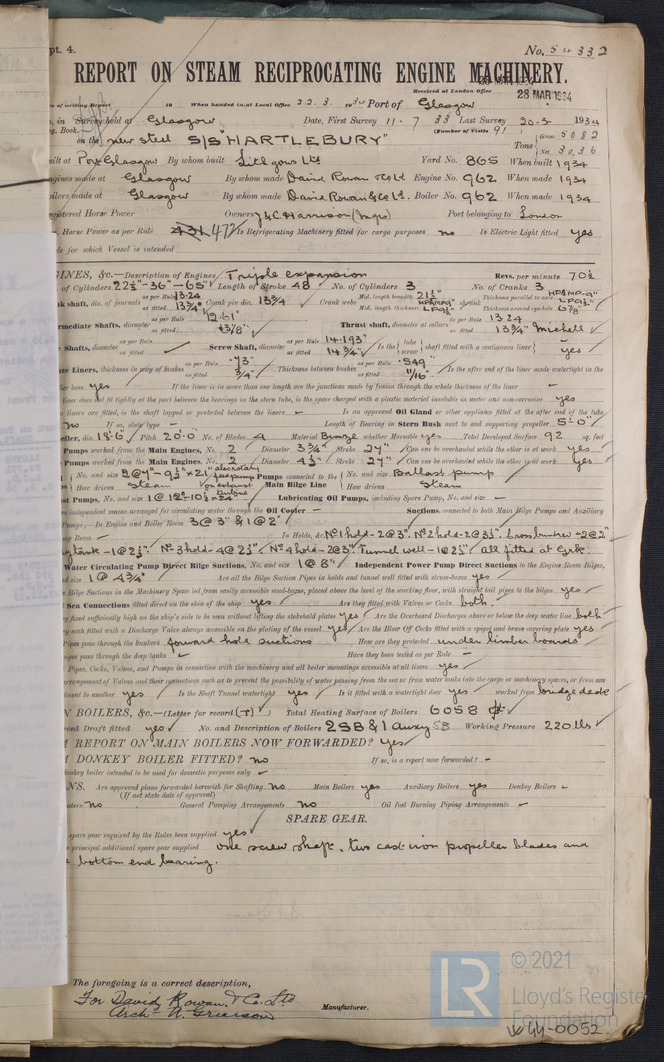 pt. 4.
No. 54332
REPORT ON STEAM RECIPROCATING ENGINE MACHINERY.
Received at London Office 28 MAR 1934
of writing Report 19 When handed in at Local Office 22.3. 1934 Port of Glasgow
in Survey held at Glasgow Date, First Survey 11-7 33 Last Survey 20-3- 1934
Book. (Number of Visits 91)
on the new steel S/S "HARTLEBURY" Tons Gross 5082 Net 3036
uilt at Port Glasgow By whom built Lithgows Ltd Yard No. 865 When built 1934
ngines made at Glasgow By whom made David Rowan & Co Ld Engine No. 962 When made 1934
oilers made at Glasgow By whom made David Rowan & Co Ld. Boiler No. 962 When made 1934
egistered Horse Power Owners J & C Harrison (Mngrs) Port belonging to London
Horse Power as per Rule 431 472 Is Refrigerating Machinery fitted for cargo purposes no Is Electric Light fitted yes
de for which Vessel is intended
GINES, &c.—Description of Engines Triple expansion Revs. per minute 70½
of Cylinders 22½"-36"-65" Length of Stroke 48 No. of Cylinders 3 No. of Cranks 3
nk shaft, dia. of journals as per Rule 13.24 as fitted 13¾" Crank pin dia. 13¾" Crank webs Mid. length breadth 21½" Mid. length thickness shrunk Thickness parallel to axis Thickness around eyehole 6⅞"
rmediate Shafts, diameter as per Rule 12.61" as fitted 13⅛" Thrust shaft, diameter at collars as per Rule 13.24 as fitted 13¾" Michell
Shafts, diameter as per Rule as fitted Screw Shaft, diameter as per Rule 14.193" as fitted 14¾" Is the tube screw shaft fitted with a continuous liner yes
ze Liners, thickness in way of bushes as per Rule .73" as fitted ¾" Thickness between bushes as per Rule .549" as fitted 11/16" Is the after end of the liner made watertight in the
ller boss yes If the liner is in more than one length are the junctions made by fusion through the whole thickness of the liner -
liner does not fit tightly at the part between the bearings in the stern tube, is the space charged with a plastic material insoluble in water and non-corrosive yes
liners are fitted, is the shaft lapped or protected between the liners - Is an approved Oil Gland or other appliance fitted at the after end of the tube
no If so, state type - Length of Bearing in Stern Bush next to and supporting propeller 5'-0"
eller, dia. 18'-6" Pitch 20'-0" No. of Blades 4 Material Bronze whether Moveable yes Total Developed Surface 92 sq. feet
Pumps worked from the Main Engines, No. 2 Diameter 3¾" Stroke 27" Can one be overhauled while the other is at work yes
Pumps worked from the Main Engines, No. 2 Diameter 4½" Stroke 27" Can one be overhauled while the other is at work yes
No. and size 2@7"-9½"x21" also rotary feed pump on exhaust turbine Pumps connected to the Main Bilge Line No. and size Ballast pump
How driven Steam How driven Steam
st Pumps, No. and size 1@12"-10½"x24" Lubricating Oil Pumps, including Spare Pump, No. and size -
independent means arranged for circulating water through the Oil Cooler - Suctions, connected to both Main Bilge Pumps and Auxiliary
Pumps;—In Engine and Boiler Room 3@3" & 1@2"
In Holds, &c. No 1 hold-2@3", No 2 hold-2@3½", Cross bunker-2@2"
tank-1@2½", No 3 hold-4@2½", No 4 hold-2@3", Tunnel well-1@2½" All fitted at Gnk.
Water Circulating Pump Direct Bilge Suctions, No. and size 1@8" Independent Power Pump Direct Suctions to the Engine Room Bilges,
size 1@4¾" Are all the Bilge Suction Pipes in holds and tunnel well fitted with strum-boxes yes
Bilge Suctions in the Machinery Space led from easily accessible mud-boxes, placed above the level of the working floor, with straight tail pipes to the bilges yes
Sea Connections fitted direct on the skin of the ship yes Are they fitted with Valves or Cocks both.
fixed sufficiently high on the ship's side to be seen without lifting the stokehold plates yes Are the Overboard Discharges above or below the deep water line both
each fitted with a Discharge Valve always accessible on the plating of the vessel yes Are the Blow Off Cocks fitted with a spigot and brass covering plate yes
ipes pass through the bunkers forward hold suctions How are they protected under limber boards
ipes pass through the deep tanks - Have they been tested as per Rule -
Pipes, Cocks, Valves, and Pumps in connection with the machinery and all boiler mountings accessible at all times yes
arrangement of Valves and their connections such as to prevent the possibility of water passing from the sea or from water tanks into the cargo or machinery spaces, or from one
tment to another yes Is the Shaft Tunnel watertight yes Is it fitted with a watertight door yes worked from bridge deck
N BOILERS, &c.—(Letter for record (T)) Total Heating Surface of Boilers 6058 ft
ced Draft fitted yes No. and Description of Boilers 2SB & 1 Auxy SB Working Pressure 220 lbs
REPORT ON MAIN BOILERS NOW FORWARDED? yes
DONKEY BOILER FITTED? no If so, is a report now forwarded? -
onkey boiler intended to be used for domestic purposes only -
NS. Are approved plans forwarded herewith for Shafting no Main Boilers yes Auxiliary Boilers yes Donkey Boilers -
(If not state date of approval)
aters no General Pumping Arrangements no Oil fuel Burning Piping Arrangements -
SPARE GEAR.
spare gear required by the Rules been supplied yes
principal additional spare gear supplied one screw shaft, two cast iron propeller blades and
bottom end bearing.
The foregoing is a correct description,
For David Rowan & Co. Ltd
Archd. W. Grierson Manufacturer.
LR © 2021
Lloyd's Registe
Foundation
W44-0052